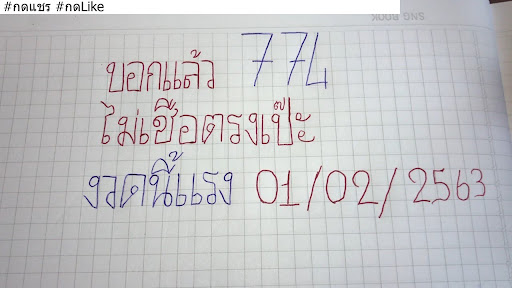 #กดแชร #กดLike
SNG BOOK
บอกแล้ว 774
ไม่เชือตรงเป๊ะ
งวดนี้แรง 01/02/2563